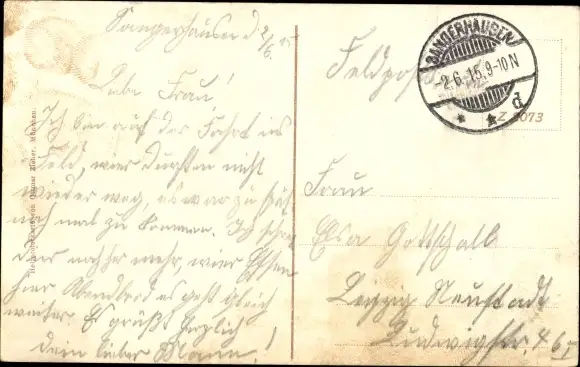 Sangerhausen d 2/6. 15
Liebe Frau!
Ich bin auf der Fahrt ins
Feld, wier durften nicht
wieder weg, es war zu spät
noch mal zu kommen. Ich schreibe
dier nachher mehr, wier Essen
hier Abendbrod es geht gleich
weiter. Es grüßt herzlich
Dein lieber Mann!
Feldpost
SANGERHAUSEN
-2.6.15.9-10N
* * d
Z 8073
Frau
Elsa Gottschalk
Leipzig Neustadt
Ludwigstr. 4 6I